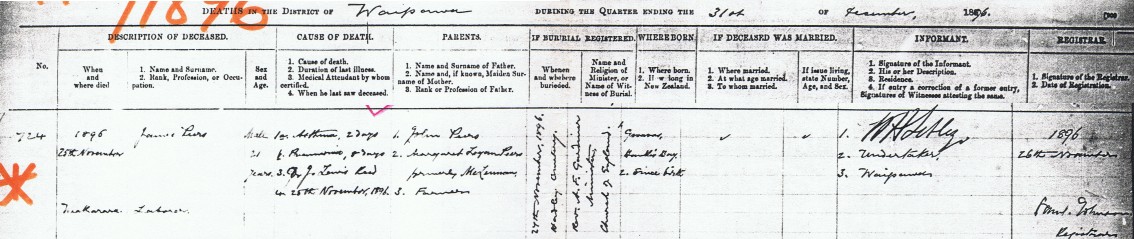 11876
DEATHS IN THE DISTRICT OF Waipawa DURING THE QUARTER ENDING THE 31st OF December, 1896.
No.
DESCRIPTION OF DECEASED.
When and where died
1. Name and Surname.
2. Rank, Profession, or Occupation.
Sex and Age.
CAUSE OF DEATH.
1. Cause of death.
2. Duration of last illness.
3. Medical Attendant by whom certified.
4. When he last saw deceased.
PARENTS.
1. Name and Surname of Father.
2. Name and, if known, Maiden Surname of Mother.
3. Rank or Profession of Father.
IF BURIAL REGISTERED.
When and where buried.
Name and Religion of Minister, or Name of Witness of Burial.
WHERE BORN.
1. Where born.
2. How long in New Zealand.
IF DECEASED WAS MARRIED.
1. Where married.
2. At what age married.
3. To whom married.
If issue living, state Number, Age, and Sex.
INFORMANT.
1. Signature of the Informant.
2. His or her Description.
3. Residence.
4. If entry a correction of a former entry, Signatures of Witnesses attesting the same.
REGISTRAR.
1. Signature of the Registrar.
2. Date of Registration.
724
1896
25th November
James Peers
Laborer
Male
21
years
1a. Asthma, 2 days
b. Pneumonia, 8 days
3. Dr J. Lewis Reed
25th November, 1896.
1. John Peers
2. Margaret Logan Peers
formerly McLennan
3. Farmer
27th November, 1896.
Cemetery
Rev. A. F. Gardiner
Minister,
Church of England
Hawke's Bay.
2. Since birth
1.
2. Undertaker,
3. Waipawa
1896
26th November
Saml. Johnson
Registrar